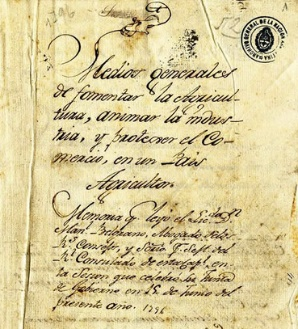 Medios generales
de fomentar la Agricul-
tura, animar la indus-
tria, y proteger el Co-
mercio, en un País
Agricultor.
Memoria q. leyó el Licdo. Dn.
Man. Belgrano, Abogado de los
Rs. Consejos, y Secrio.
Rl. Consulado de esta Capl. en
la Sesion que celebró su Junta
de Gobierno en 15 de Junio del
presente año. 1796